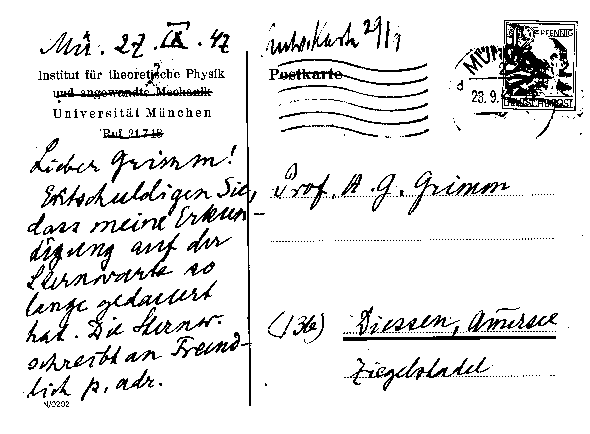 Mü. 27. IX. 47
Institut für theoretische Physik
und angewandte Mechanik
Universität München
Ruf 21748
Lieber Grimm!
Entschuldigen Sie,
dass meine Erkun-
digung auf der
Sternwarte so
lange gedauert
hat. Die Sternw.
schreibt an Freund-
lich p. adr.
Postkarte
29/9
MÜN
23.9.
PFENNIG
DEUTSCHE POST
Prof. A. G. Grimm
(13b) Diessen, Ammersee
Ziegelstadel